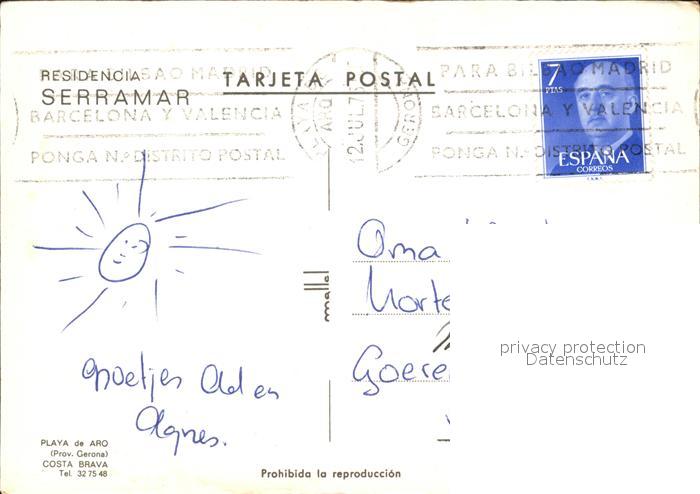 RESIDENCIA
SERRAMAR
TARJETA POSTAL
PARA BILBAO MADRID
BARCELONA Y VALENCIA
PONGA N.º DISTRITO POSTAL
PLAYA ARO
12 JUL 7
GERONA
PARA BILBAO MADRID
BARCELONA Y VALENCIA
PONGA N.º DISTRITO POSTAL
7
PTAS
ESPAÑA
CORREOS
Oma
Horte
Goere
privacy protection
Datenschutz
groetjes Ad en
Agnes.
PLAYA de ARO
(Prov. Gerona)
COSTA BRAVA
Tel. 32 75 48
Prohibida la reproducción